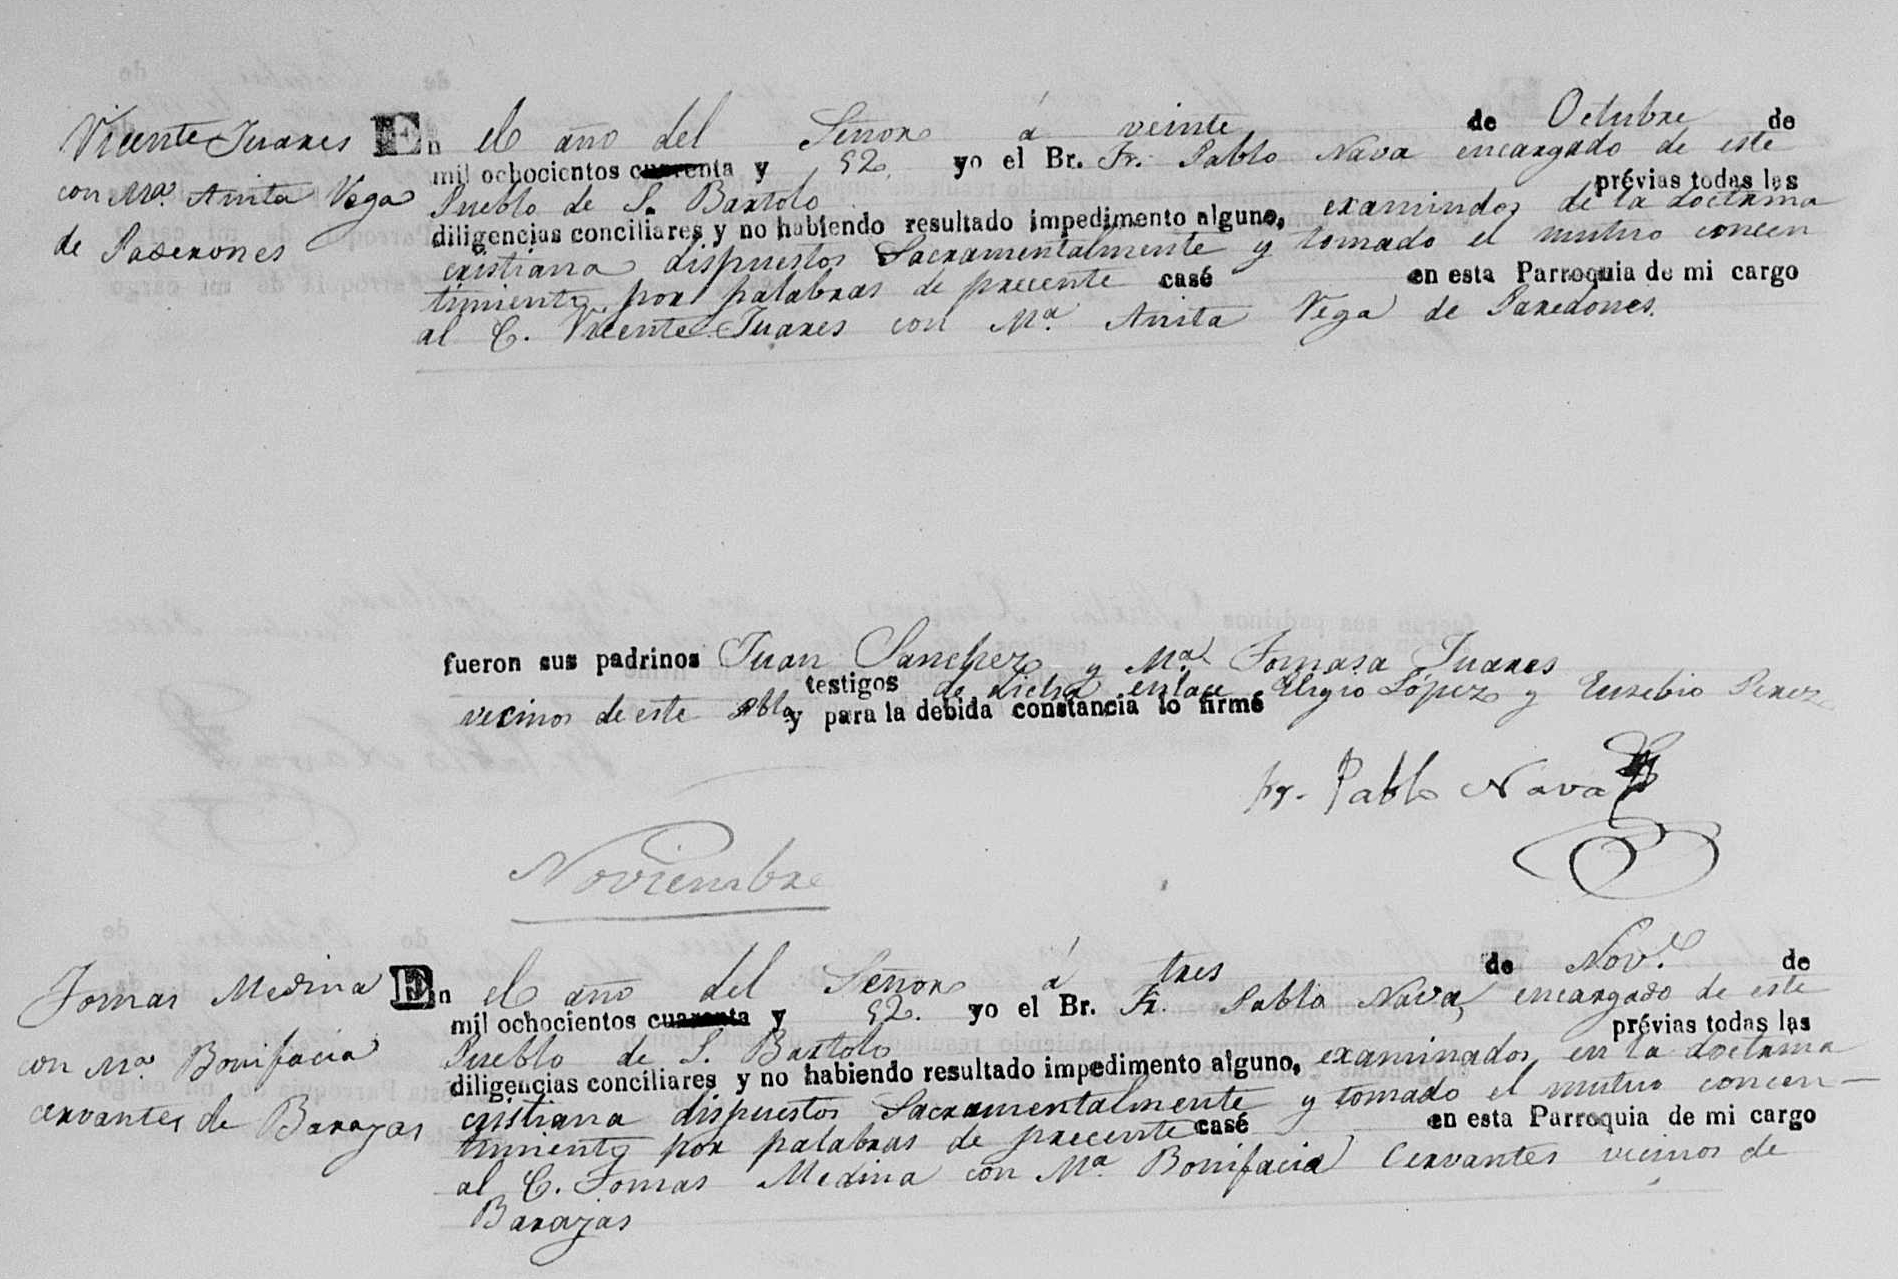 Vicente Juares
con Mª. Anita Vega
de Paderones
En el año del Señor á veinte de Octubre de
mil ochocientos cuarenta y 52. yo el Br. Fr. Pablo Nava encargado de este
Pueblo de S. Bartolo prévias todas las
diligencias conciliares y no habiendo resultado impedimento alguno, examindos de la doctrina
cristiana dispuestos Sacramentalmente y tomado el mutuo concen
timiento por palabras de precente casé en esta Parroquia de mi cargo
al C. Vicente Juares con Mª. Anita Vega de Paredones.
fueron sus padrinos Juan Sanchez y Mª. Tomasa Juares
vecinos de este Pblo testigos de dicha enlace Eligio López y Eusebio Perez
y para la debida constancia lo firmé
Fr. Pablo Nava
Noviembre
Tomas Medina
con Mª Bonifacia
cervantes de Barajas
En el año del Señor á tres de Nov.e de
mil ochocientos cuarenta y 52. yo el Br. Fr. Pablo Nava, encargado de este
Pueblo de S. Bartolo prévias todas las
diligencias conciliares y no habiendo resultado impedimento alguno, examinados en la doctrina
cristiana dispuestos Sacramentalmente y tomado el mutuo concen—
timiento por palabras de precente casé en esta Parroquia de mi cargo
al C. Tomas Medina con Mª. Bonifacia Cervantes vecinos de
Barajas